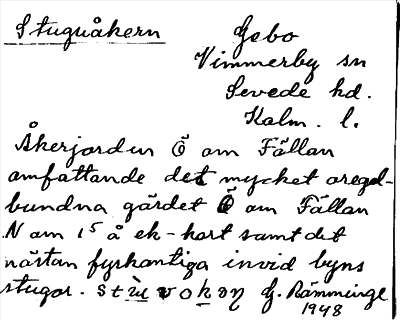 Stuguåkern
Gebo
Vimmerby sn
Sevede hd.
Kalm. l.
Åkerjorden Ö om Fällan
omfattande det mycket oregel-
bundna gärdet Ö om Fällan
N om 15 å ek-kart samt det
nästan fyrkantiga invid byns
stugor. G. Rämminge
1948